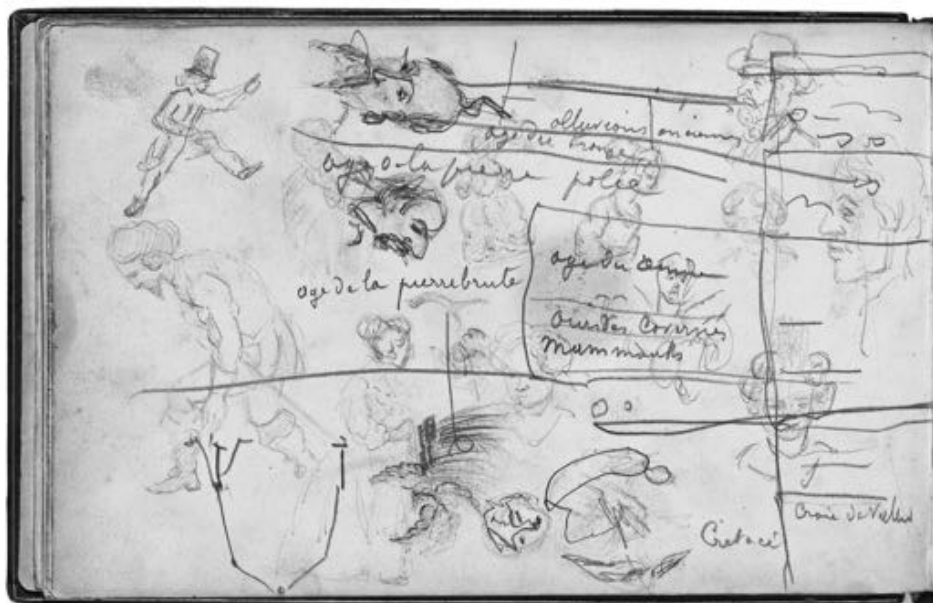 alluvions anciennes
age du bronze
age de la pierre polie
age de la pierre brute
age du renne
ours des cavernes
Mammouths
Crétacé
Craie de